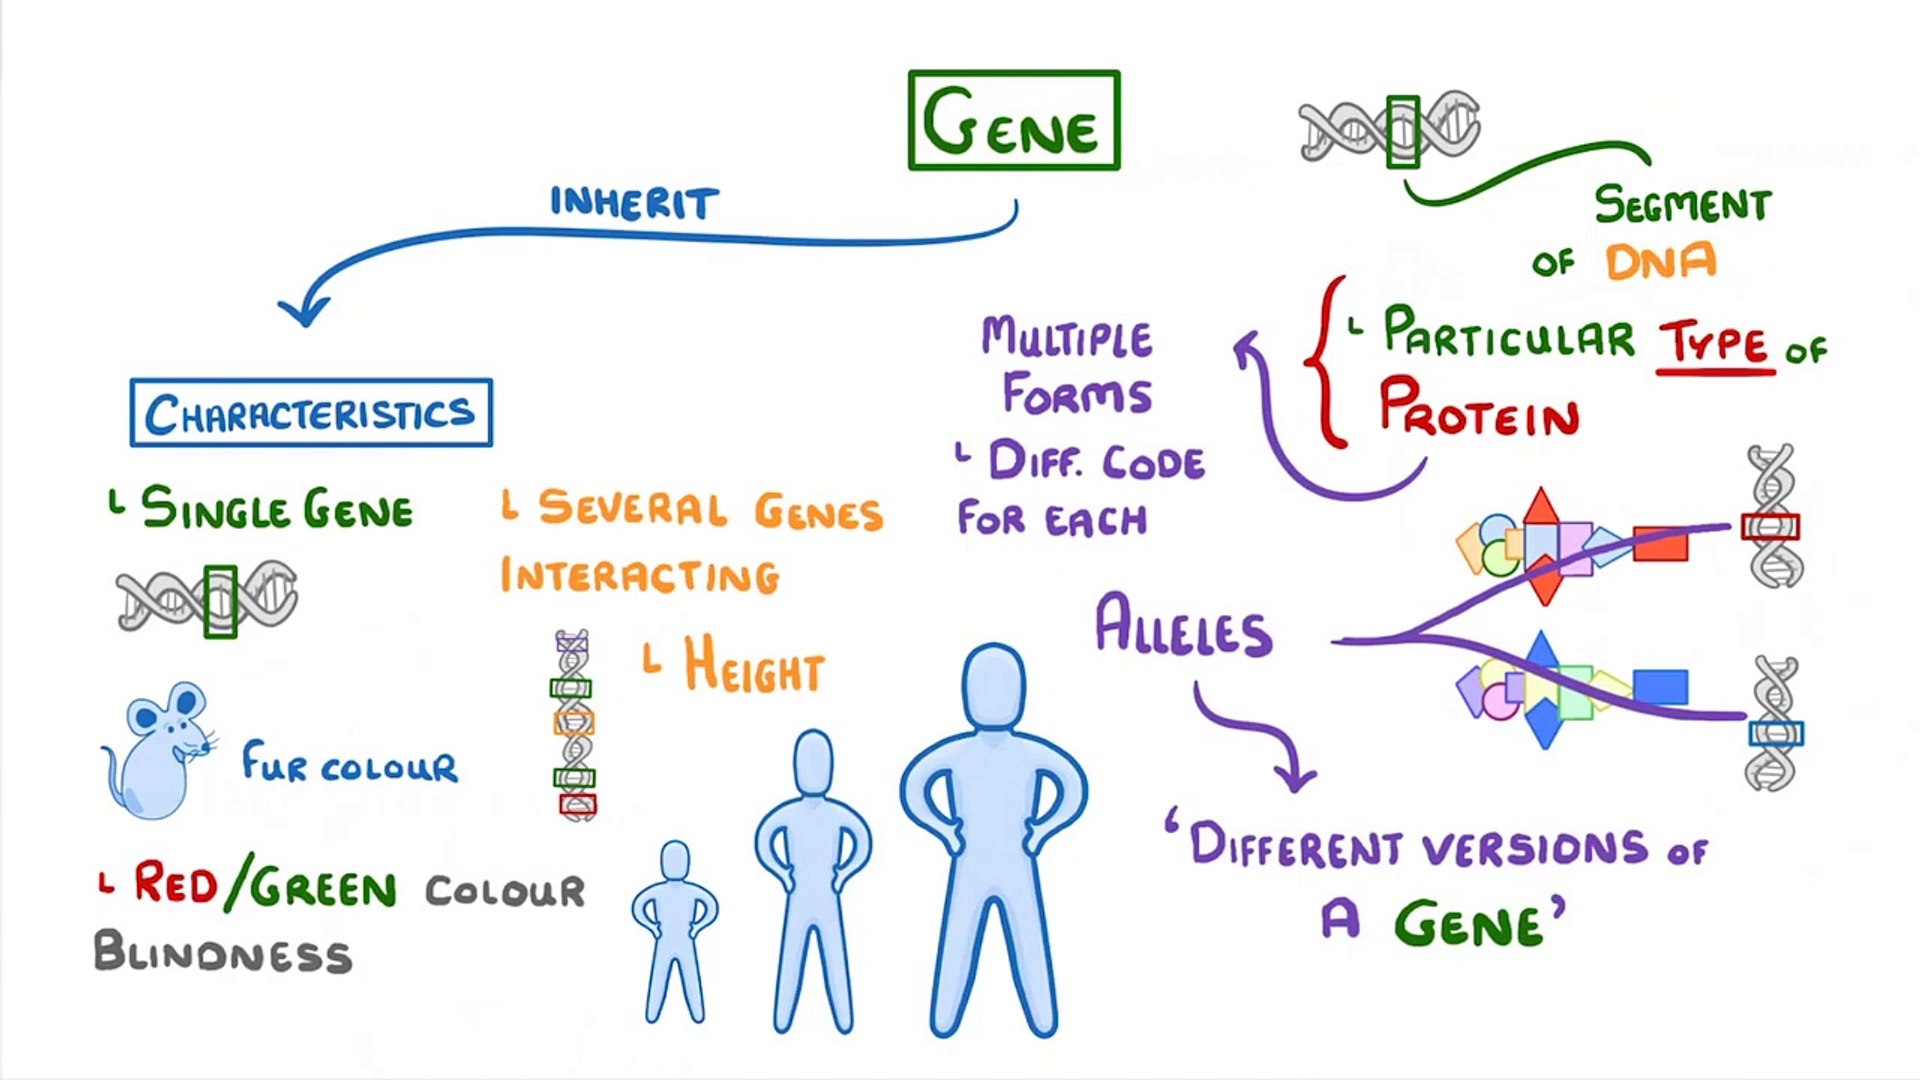 GENE
INHERIT
CHARACTERISTICS
SINGLE GENE
FUR COLOUR
RED/GREEN COLOUR
BLINDNESS
SEVERAL GENES
INTERACTING
HEIGHT
SEGMENT
OF DNA
PARTICULAR TYPE OF
PROTEIN
MULTIPLE
FORMS
DIFF. CODE
FOR EACH
ALLELES
‘DIFFERENT VERSIONS OF
A GENE’